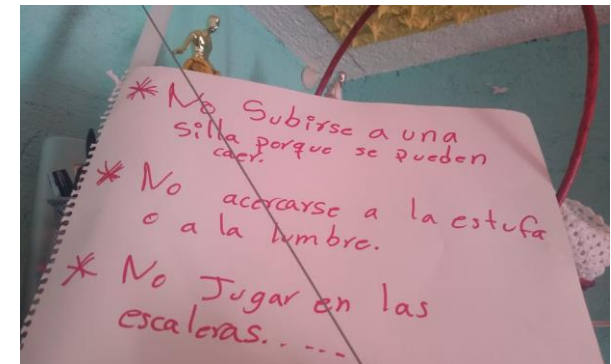 * No Subirse a una
silla porque se pueden
caer.
* No acercarse a la estufa
o a la lumbre.
* No Jugar en las
escaleras. . ---